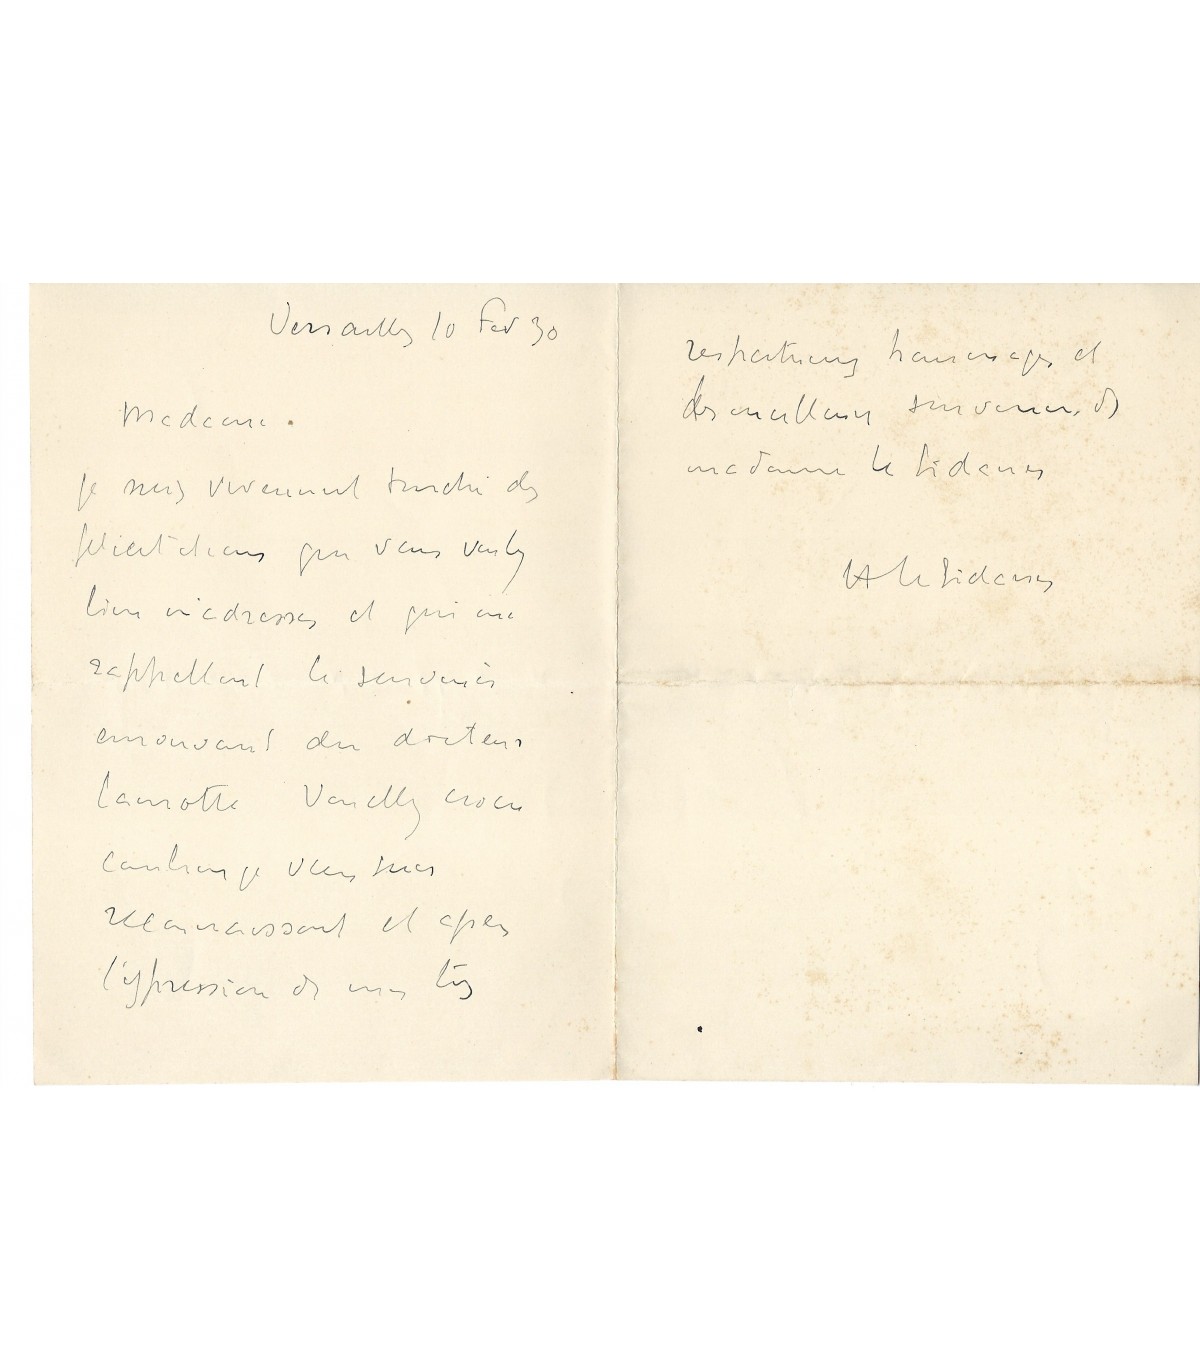 Versailles 10 Fev 30
Madame.
je suis vivement touché des
félicitations que vous voulez
bien m'adresser et qui me
rappellent le souvenir
émouvant du docteur
Lamotte Veuillez croire
combien je vous suis
reconnaissant et agréez
l'expression de mes très
respectueux hommages et
des meilleurs souvenirs de
madame Le Sidaner
H Le Sidaner